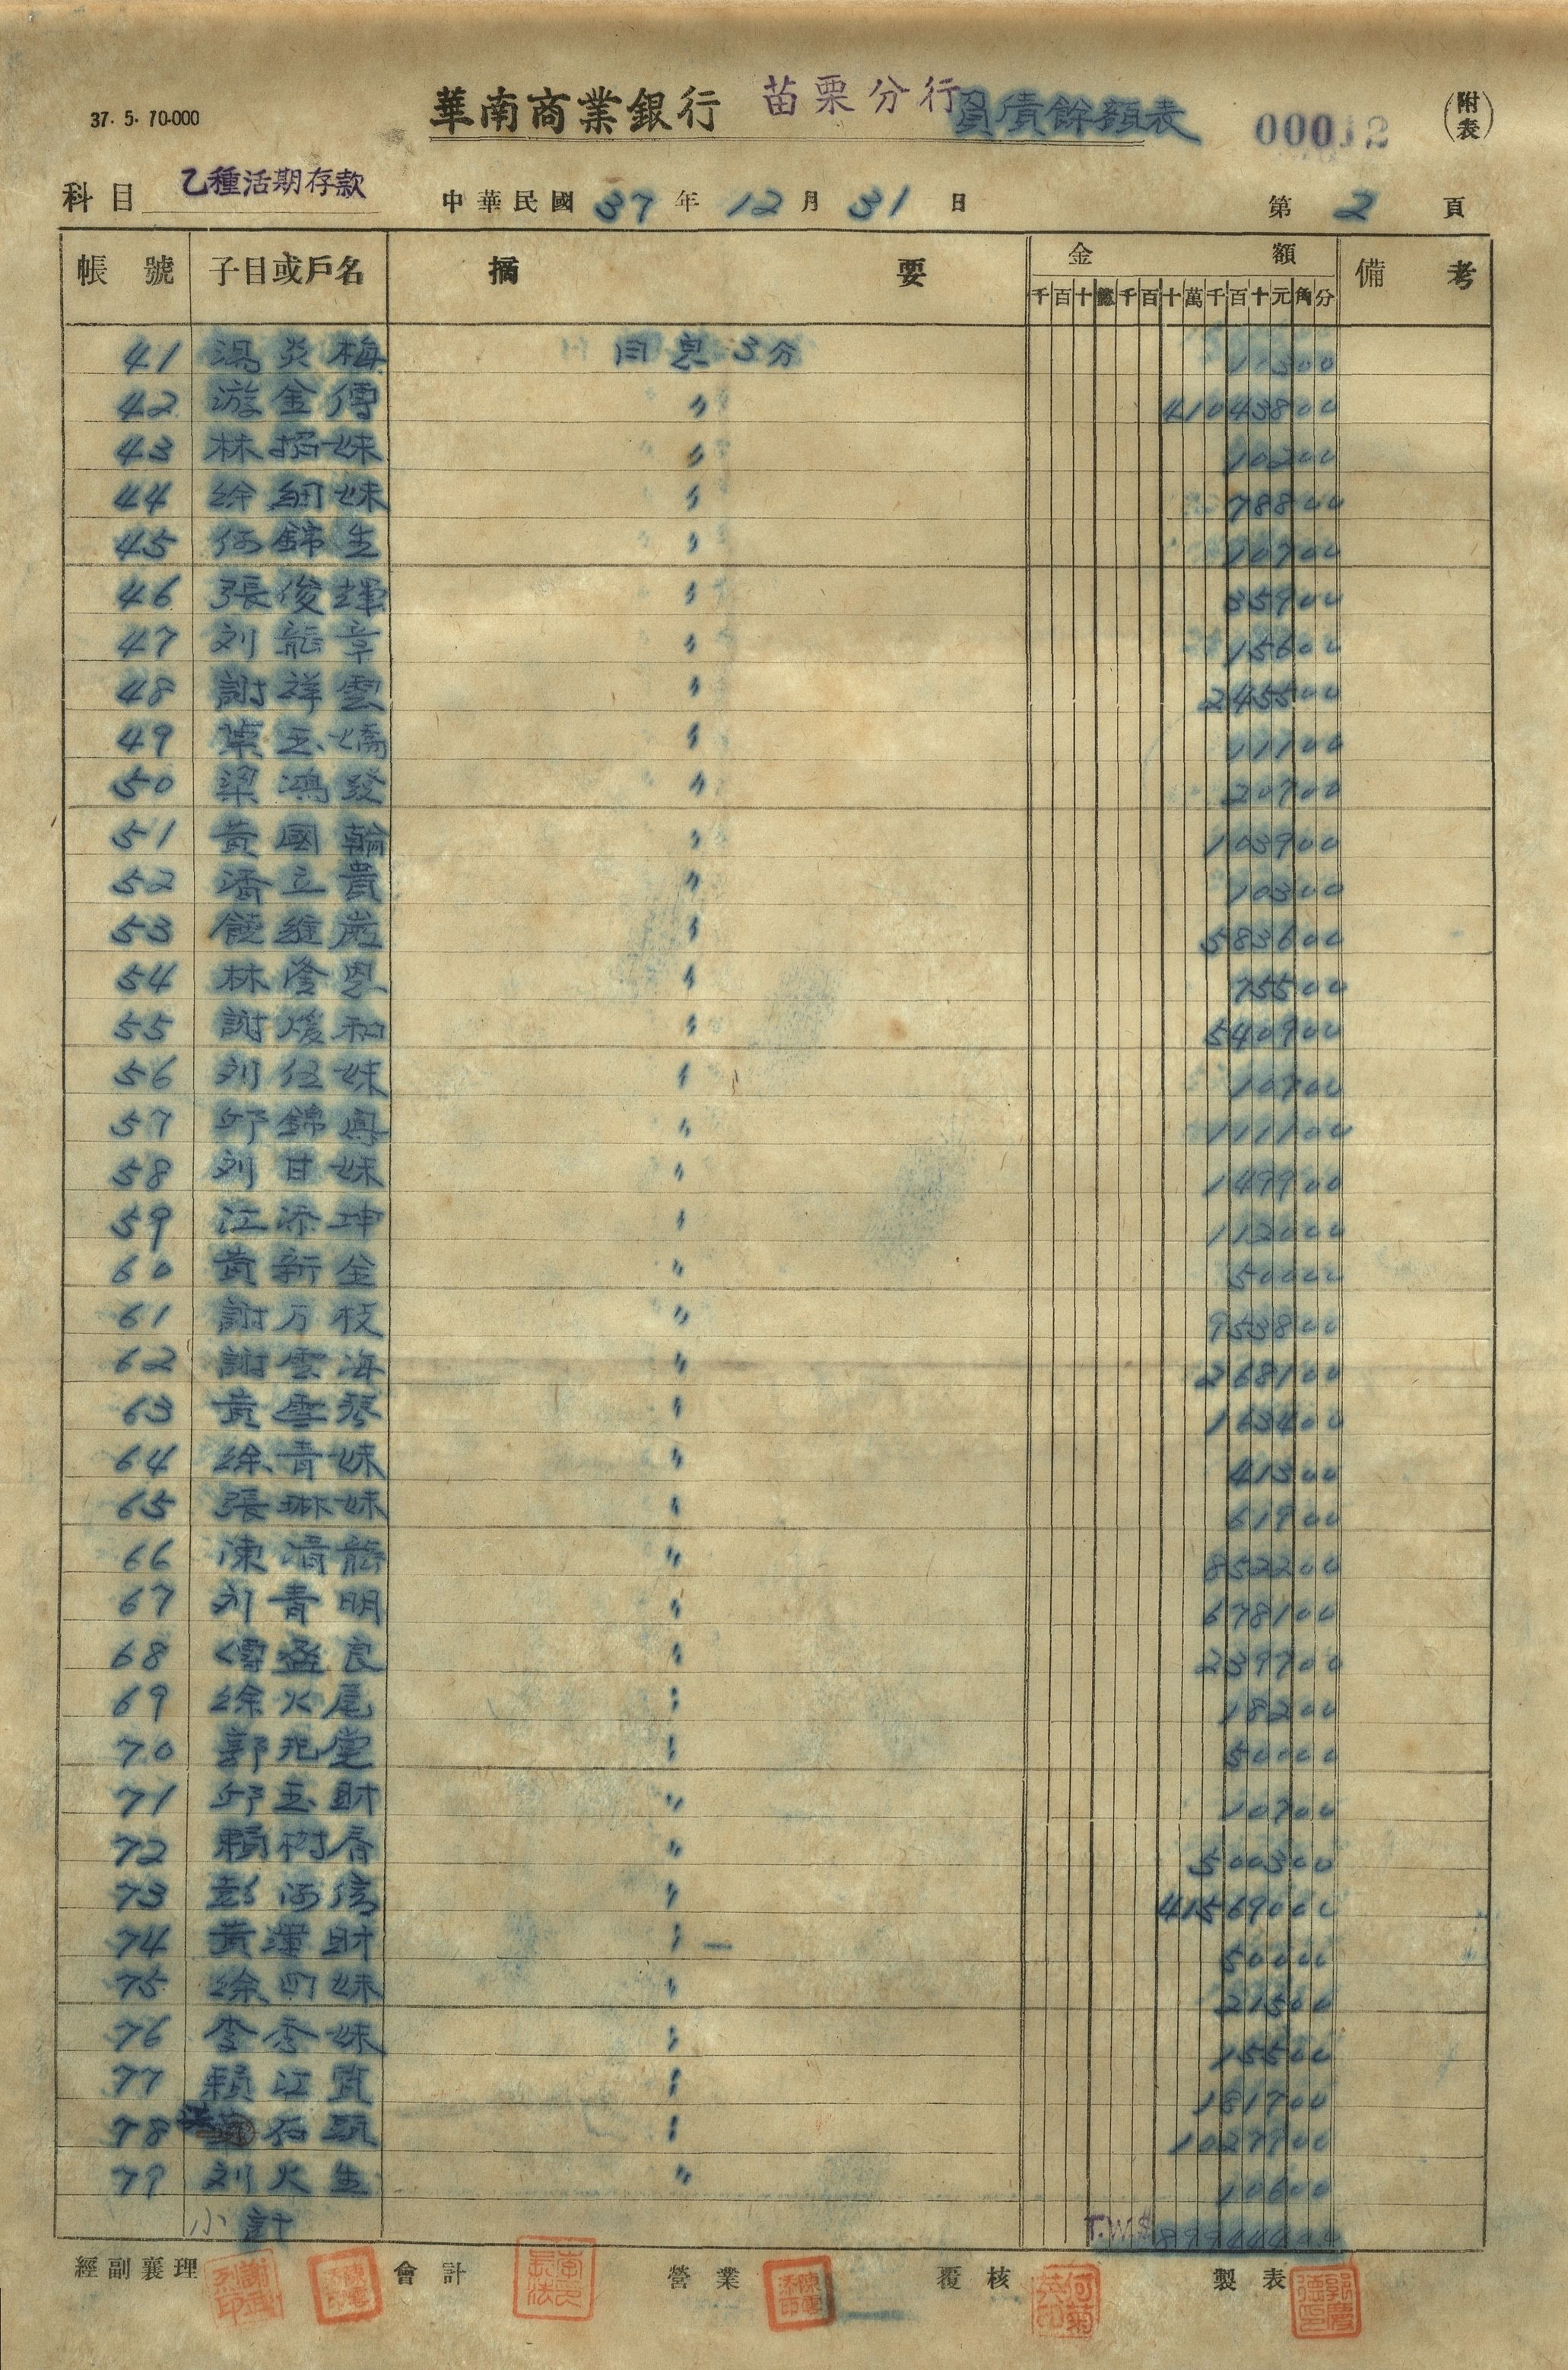 37. 5. 70.000
華南商業銀行 苗栗分行 負債餘額表 00012 (附表)
科目 乙種活期存款 中華民國 37 年 12 月 31 日 第 2 頁
帳號 子目或戶名 摘要 金額 備考
千 百 十 億 千 百 十 萬 千 百 十 元 角 分
41 湯炎梅 日息3分 10300
42 游金傳 〃 41043800
43 林招妹 〃 10200
44 徐細妹 〃 78800
45 何錦生 〃 10700
46 張俊輝 〃 35900
47 刘龍章 〃 15600
48 謝祥雲 〃 245500
49 葉玉嬌 〃 11100
50 梁鴻發 〃 20700
51 黃國輪 〃 103900
52 潘立貴 〃 10300
53 饒維岩 〃 583600
54 林隆恩 〃 75500
55 謝煖和 〃 540900
56 刘伍妹 〃 10700
57 邱錦 〃 111100
58 刘甘妹 〃 149900
59 江添坤 〃 112000
60 黃新金 〃 50000
61 謝万枝 〃 953800
62 謝雲海 〃 268100
63 黃雪琴 〃 163400
64 徐青妹 〃 41300
65 張琳妹 〃 61900
66 陳清龍 〃 852200
67 刘青明 〃 678100
68 傅盛良 〃 239700
69 徐火尾 〃 18200
70 郭兆堂 〃 50000
71 邱玉財 〃 10700
72 賴樹香 〃 500300
73 彭河信 〃 41569000
74 黃運財 〃 50000
75 徐四妹 〃 21500
76 李秀妹 〃 15500
77 賴江質 〃 181700
78 石頭 〃 1027900
79 刘火生 〃 10600
小計 T.W.$ 89944400
經副襄理 會計 營業 覆核 製表